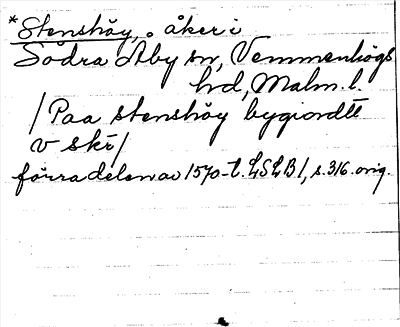 *Stenshöy, åker i
Södra Åby sn, Vemmenhögs
hrd, Malm. l.
/Paa stenshöy bygiordtt
v skr/
förra delen av 1570-t. LSLB 1, s. 316. orig.